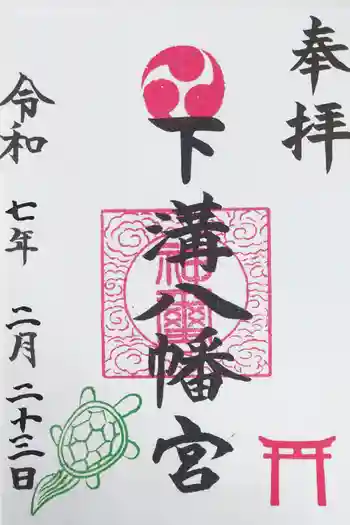 奉拝
下溝八幡宮
令和 七年 二月 二十三日